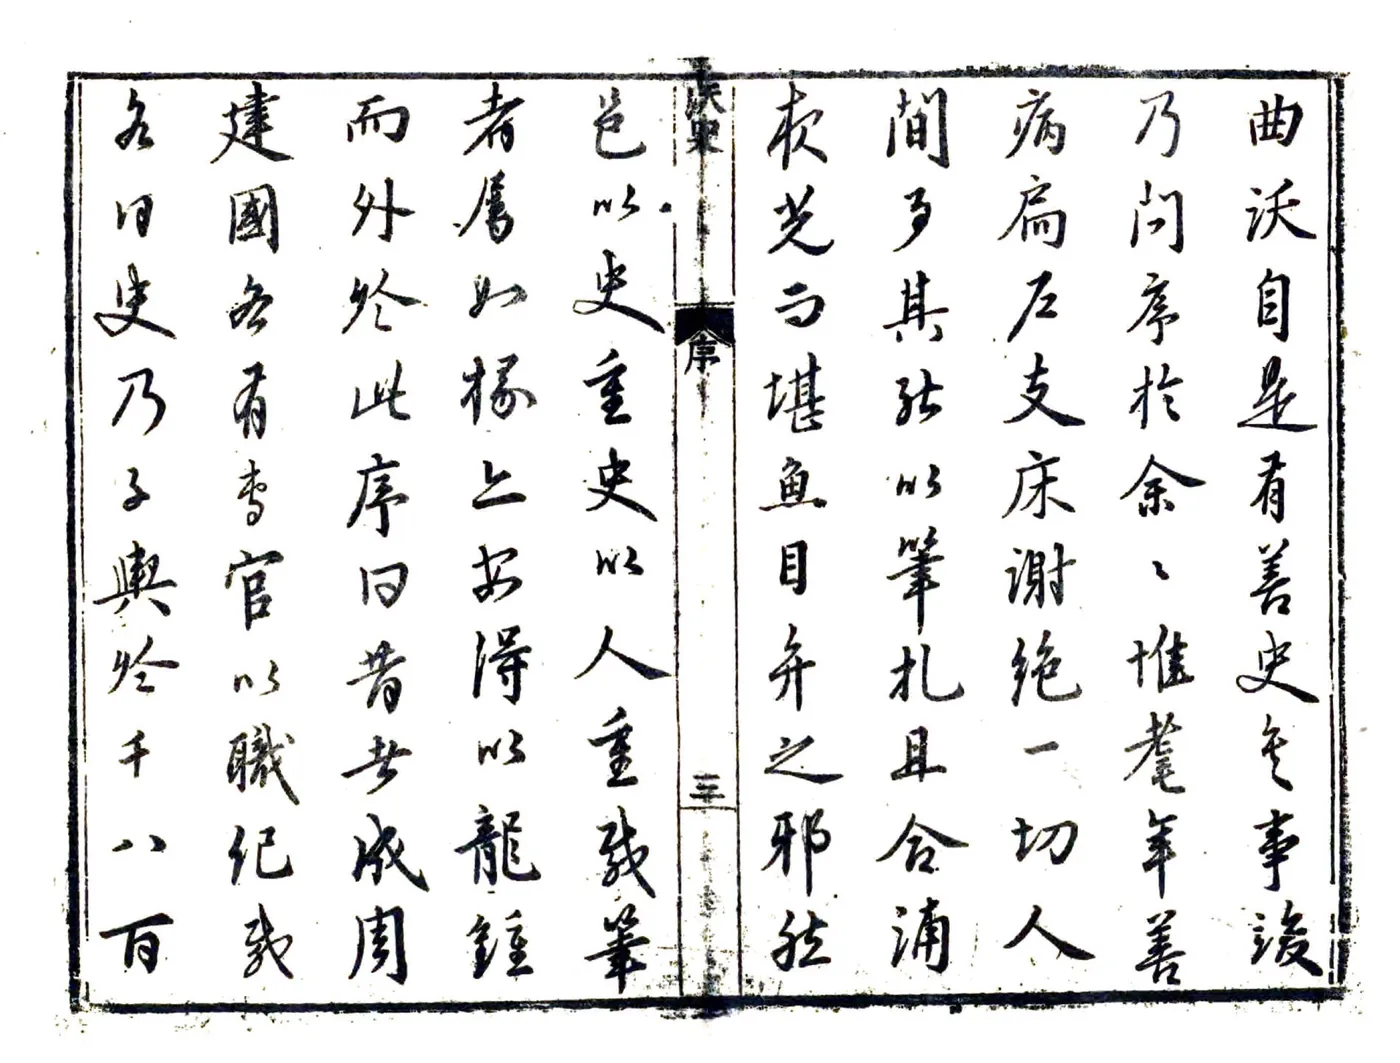 曲沃自是有善史矣事竣
乃問序於余〻惟耄年善
病扁戶支床謝絕一切人
間事其能以筆札且合浦
夜光而堪魚目弁之邪然
沃史
序
三
邑以史重史以人重載筆
者屬如椽上安得以龍鍾
而外於此序曰昔者成周
建國各有專官以職紀載
各曰史乃子輿於千八百